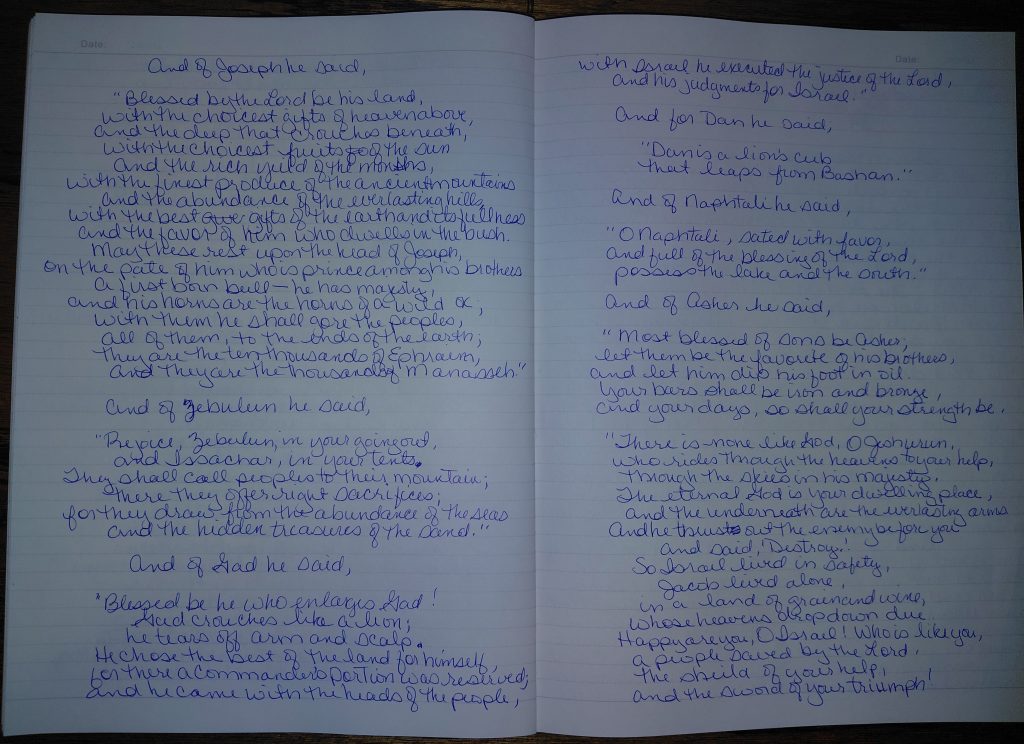 Date:
And of Joseph he said,
"Blessed by the Lord be his land,
with the choicest gifts of heaven above,
and the deep that crouches beneath,
with the choicest fruits of the sun
and the rich yield of the months,
with the finest produce of the ancient mountains
and the abundance of the everlasting hills,
with the best gifts of the earth and its fullness
and the favor of him who dwells in the bush.
May these rest upon the head of Joseph,
on the pate of him who is prince among his brothers
A first born bull — he has majesty,
and his horns are the horns of a wild ox;
with them he shall gore the peoples,
all of them, to the ends of the earth;
they are the ten thousands of Ephraim,
and they are the thousands of Manasseh."
And of Zebulun he said,
"Rejoice, Zebulun, in your going out,
and Issachar, in your tents.
They shall call peoples to their mountain;
there they offer right sacrifices;
for they draw from the abundance of the seas
and the hidden treasures of the sand."
And of Gad he said,
"Blessed be he who enlarges Gad!
Gad crouches like a lion;
he tears off arm and scalp.
He chose the best of the land for himself,
for there a commanders portion was reserved;
and he came with the heads of the people,
Date:
with Israel he executed the justice of the Lord,
and his judgments for Israel."
And for Dan he said,
"Dan is a lion's cub
that leaps from Bashan."
And of Naphtali he said,
"O Naphtali, sated with favor,
and full of the blessing of the Lord,
possess the lake and the south."
And of Asher he said,
"Most blessed of sons be Asher;
let them be the favorite of his brothers,
and let him dip his foot in oil.
Your bars shall be iron and bronze,
and your days, so shall your strength be.
"There is none like God, O Jeshurun,
who rides through the heavens to your help,
through the skies in his majesty.
The eternal God is your dwelling place,
and the underneath are the everlasting arms
And he thrusts out the enemy before you
and said, 'Destroy!
So Israel lived in safety,
Jacob lived alone,
in a land of grain and wine,
whose heavens drop down due.
Happy are you, O Israel! Who is like you,
a people saved by the Lord.
the sheild of your help,
and the sword of your triumph!